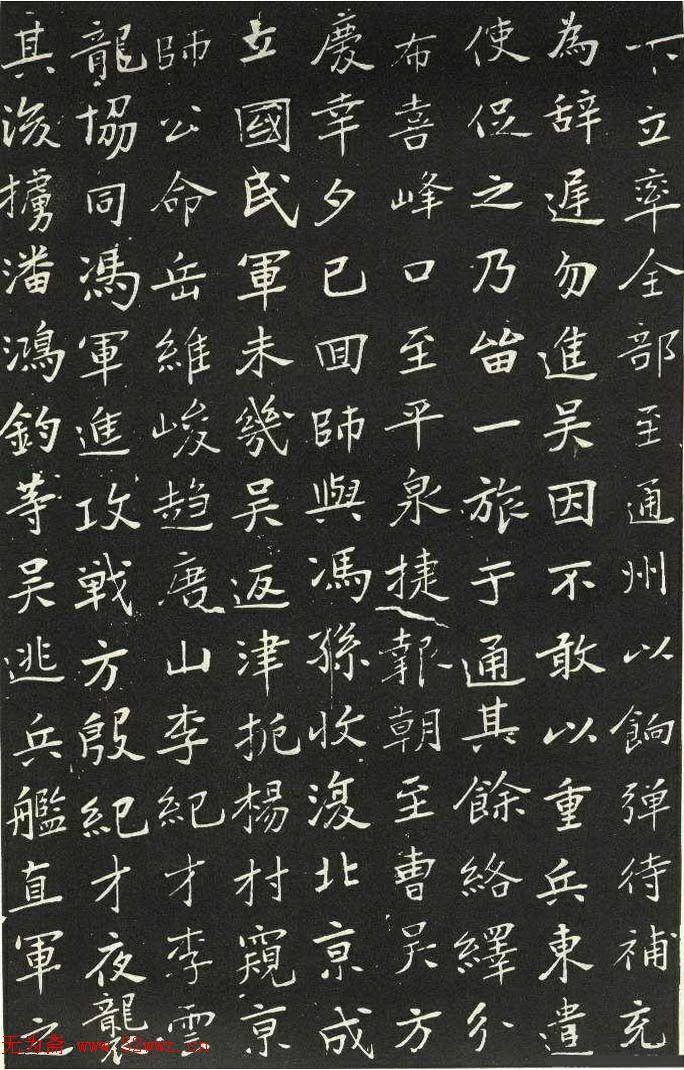 下立率全部至通州以餉弹待補充
為辞遅勿進吴因不敢以重兵東遣
使促之乃畱一旅于通其餘絡繹分
布喜峰口至平泉捷報朝至曹吴方
慶幸夕已囬師與馮孫收復北京成
立國民軍未幾吴返津扼楊村窺京
師公命岳維峻趋唐山李紀才李雲
龍協同馮軍進攻戦方殷紀才夜襲
其後擄潘鴻鈞等吴逃兵艦直軍之
无为斋 www.52wwz.cn